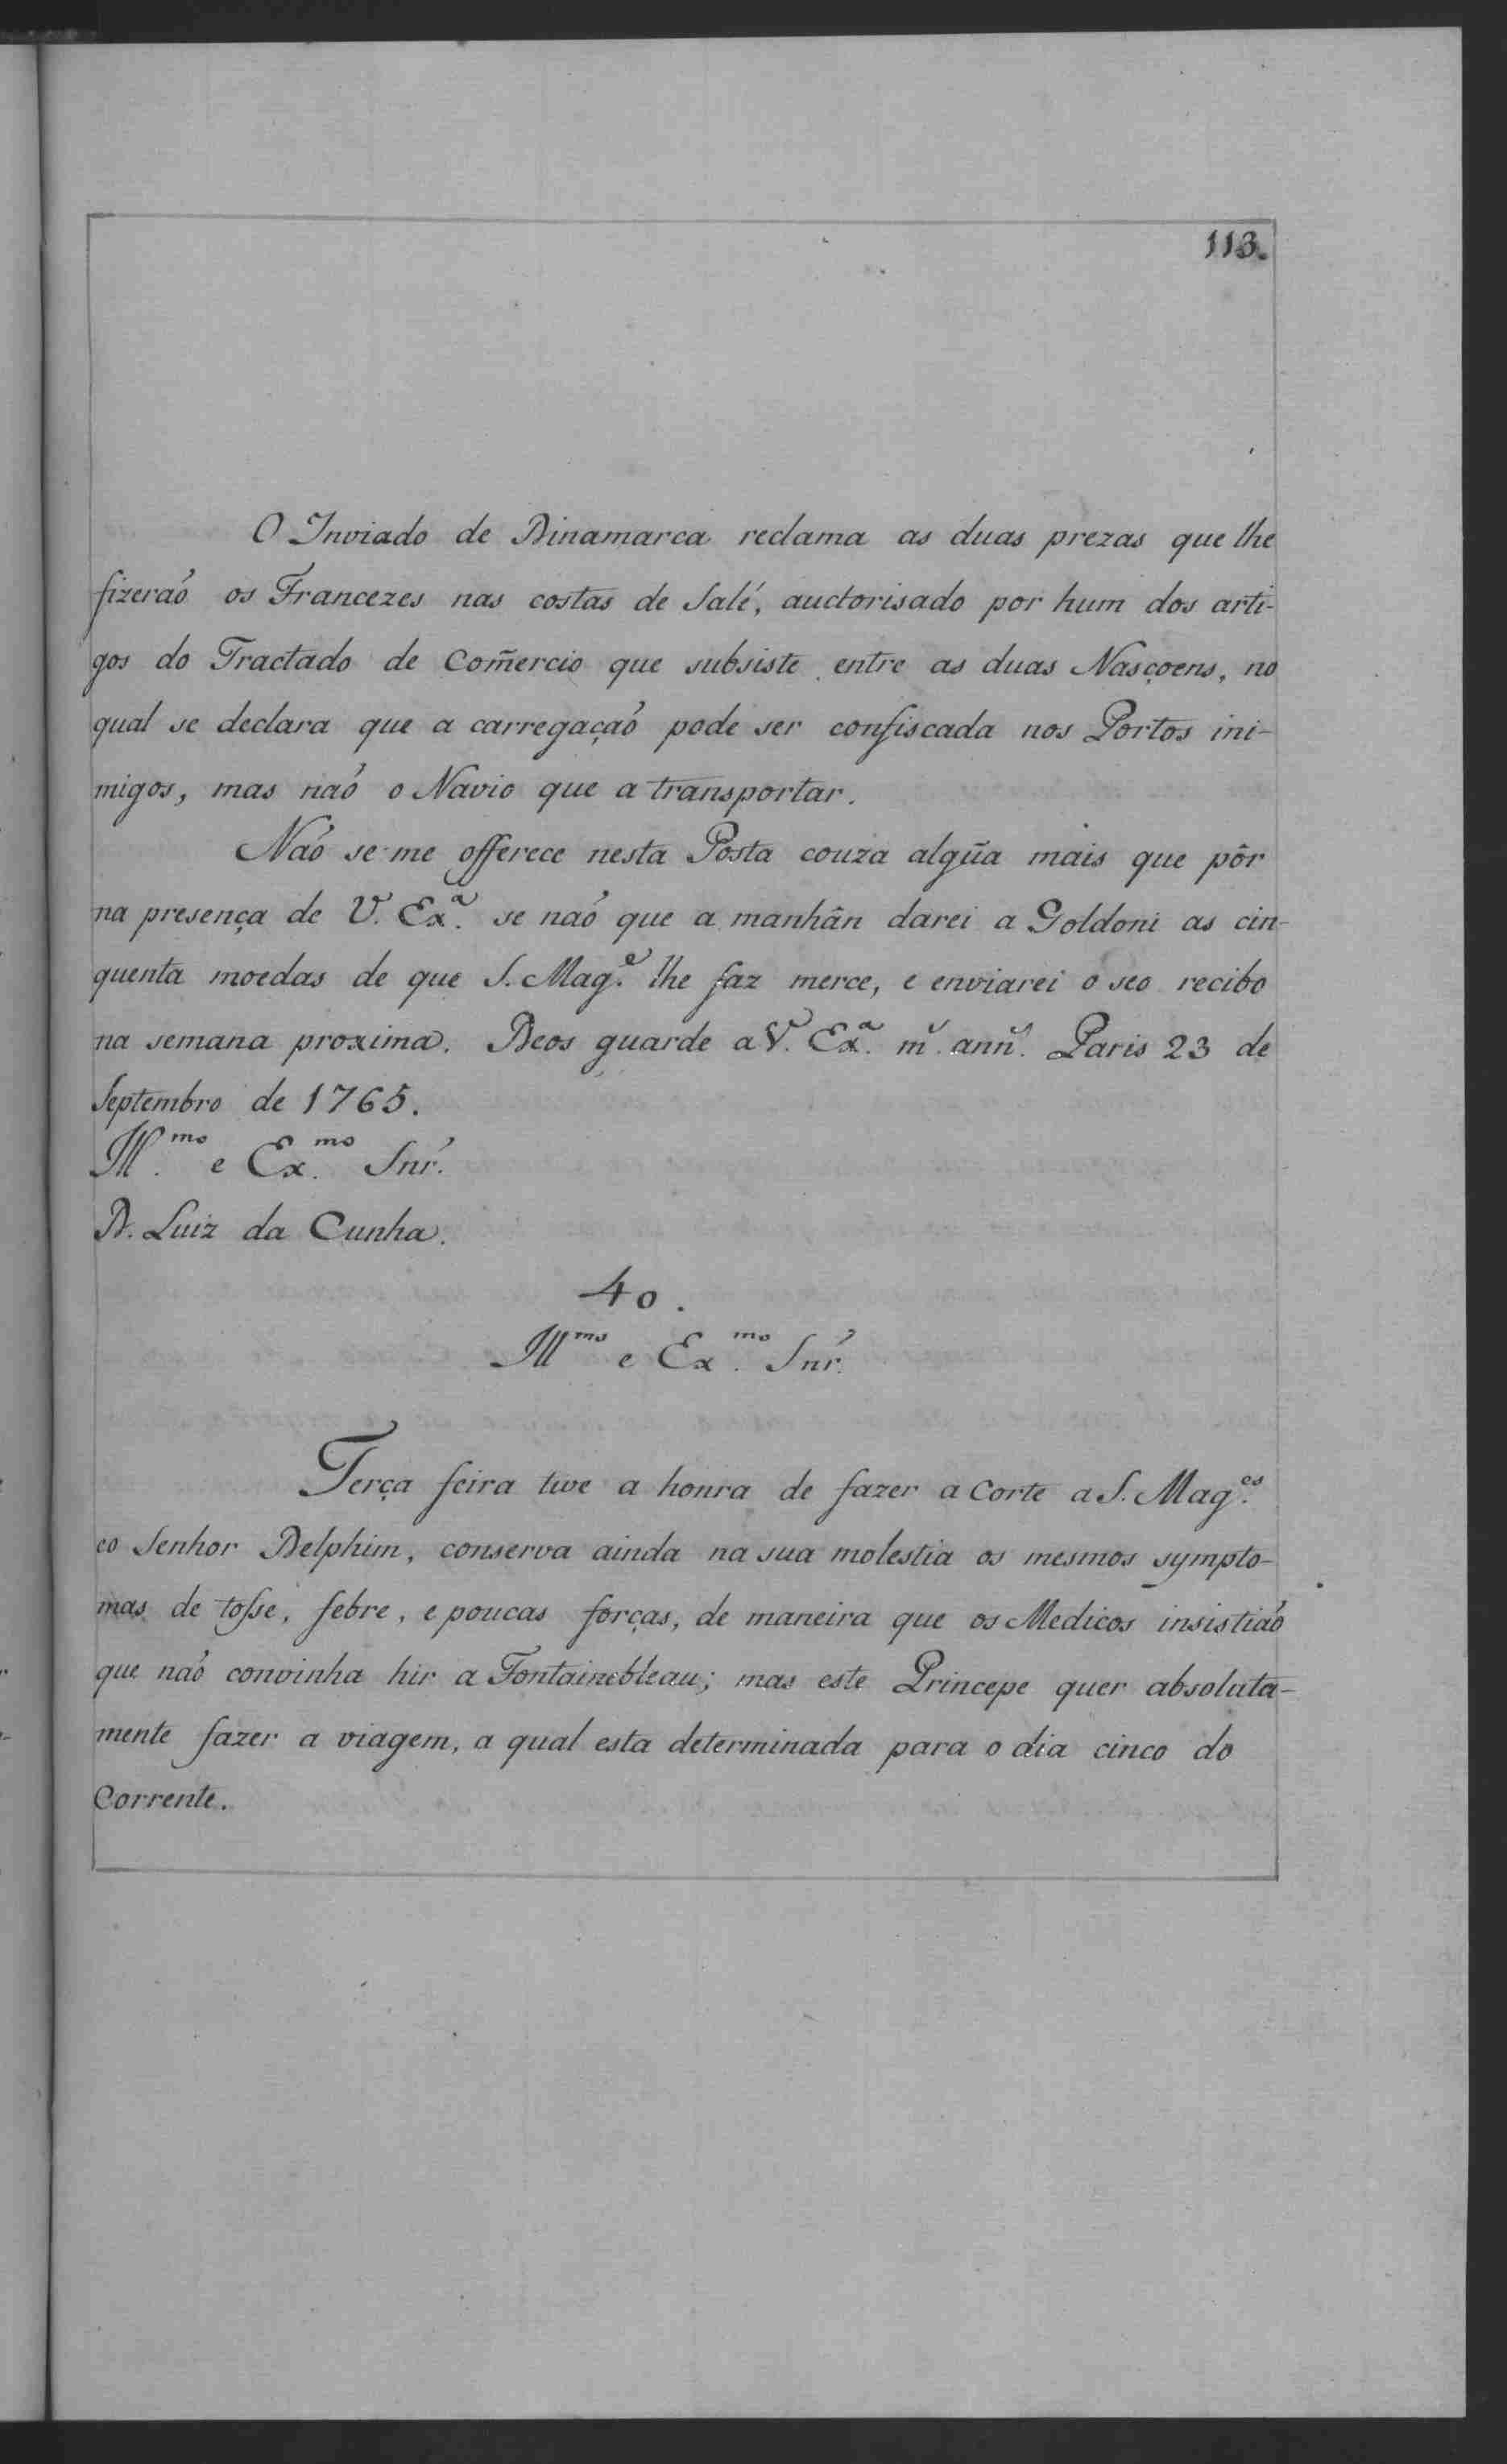 113.
O Inviado de Dinamarca reclama as duas prezas que lhe
fizeraõ os Francezes nas costas de Salé, auctorisado por hum dos arti-
gos do Tractado de Com̃ercio que subsiste entre as duas Nasçoens, no
qual se declara que a carregaçaõ pode ser confiscada nos Portos ini-
migos, mas naõ o Navio que a transportar.
Naõ se me offerece nesta Posta couza algũa mais que pôr
na presença de V. Ex.ª se naõ que a manhân darei a Goldoni as cin-
quenta moedas de que S. Mag.e lhe faz merce, e enviarei o seo recibo
na semana proxima. Deos guarde a V. Ex.ª m.s ann.s Paris 23 de
Septembro de 1765.
Ill.mo e Ex.mo Snr.
D. Luiz da Cunha.
40.
Ill.mo e Ex.mo Snr.
Terça feira tive a honra de fazer a Corte a S. Mag.es
eo Senhor Delphim, conserva ainda na sua molestia os mesmos sympto-
mas de tosse, febre, e poucas forças, de maneira que os Medicos insistiaõ
que naõ convinha hir a Fontainebleau; mas este Princepe quer absoluta-
mente fazer a viagem, a qual esta determinada para o dia cinco do
Corrente.